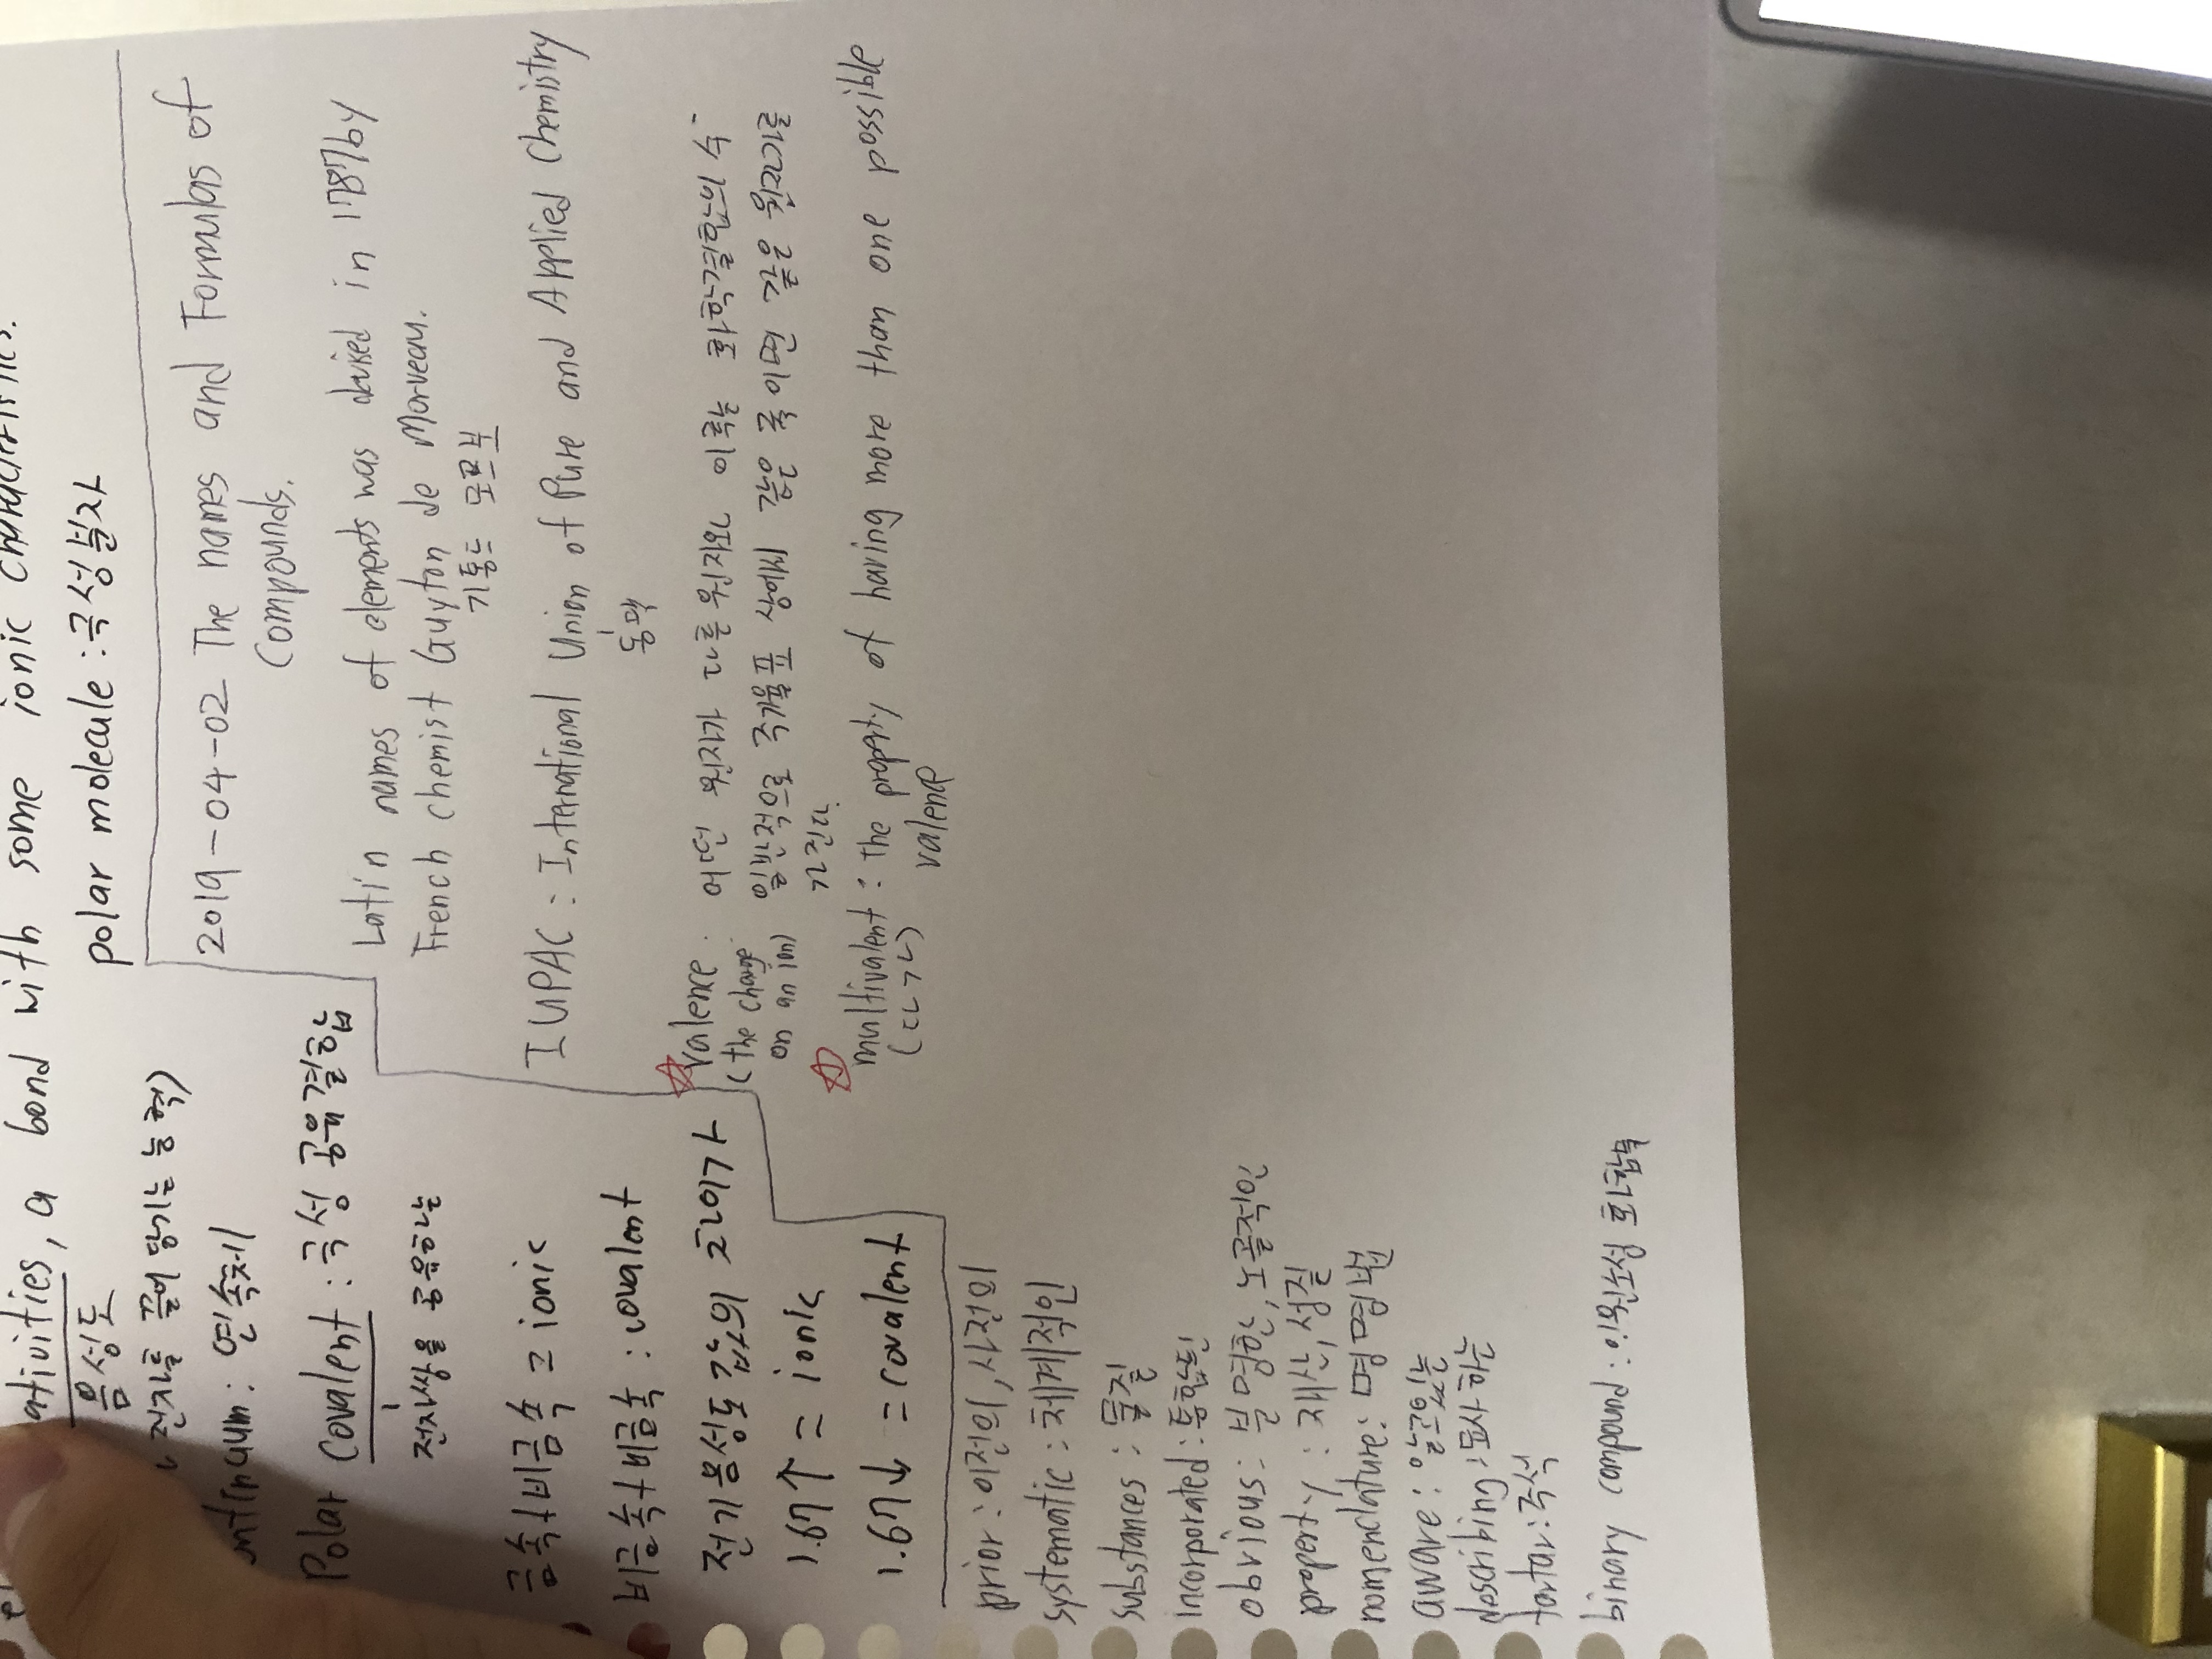 ativities, a bond with some ionic characteristics.
음성도
전자를 끌어 당기는 능력)
polar molecule : 극성분자
ntinuum : 연속체
Polar covalent : 극성 공유결합
전자쌍을 공유하는
금속+비금속 = ionic
비금속+비금속 : covalent
전기음성도 값의 차이가
1.67↑ = ionic
1.67↓ = covalent
2019-04-02 The names and Formulas of
Compounds.
Latin names of elements was devised in 1787 by
French chemist Guyton de Morveau.
기통느 모르보
IUPAC : International Union of Pure and Applied Chemistry
동맹
☆ Valence : 어떤 원자가 다른 원자와 이루는 화학결합의 수.
(the charge on an ion) 일반적으로 주기율표 상에서 같은 족이면 같은 원자가를
가진다.
☆ multivalent : the property of having more than one possible
(다가) valence
prior : 이전의, 사전의
systematic : 체계적인
substances : 물질
incorporated : 통합된
obvious : 분명한, 노골적인
property : 재산, 성질
nomenclature : 명명법
aware : 알고있는
describing : 묘사하는
tartar : 주석
binary compound : 이원소성 화합물